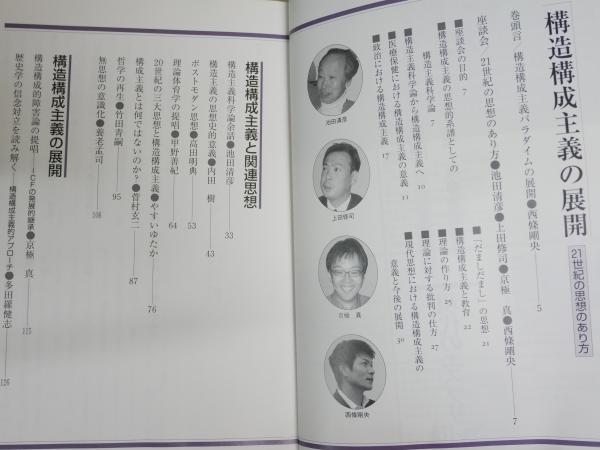 構造構成主義の展開
21世紀の思想のあり方
巻頭言/構造構成主義パラダイムの展開●西條剛央 5
座談会/21世紀の思想のあり方●池田清彦●上田修司●京極 真●西條剛央 7
■座談会の目的 7
■構造構成主義の思想的系譜としての
構造主義科学論 7
■構造主義科学論から構造構成主義へ 10
■医療保健における構造構成主義の意義 11
■政治における構造構成主義 17
■「だましだまし」の思想 21
■構造構成主義と教育 22
■理論の作り方 25
■理論に対する批判の仕方 27
■現代思想における構造構成主義の
意義と今後の展開 30
池田清彦
上田修司
京極 真
西條剛央
構造構成主義と関連思想
構造主義科学論余話●池田清彦 33
構造主義の思想史的意義●内田 樹 43
ポストモダン思想●高田明典 53
理論体育学の提唱●甲野善紀 64
20世紀の三大思想と構造構成主義●やすいゆたか 76
構造主義とは何ではないのか?●菅村玄二 87
哲学の再生●竹田青嗣 95
無思想の意識化●養老孟司 108
構造構成主義の展開
構造構成的障害論の提唱─ICFの発展的継承●京極 真 115
歴史学の信念対立を読み解く─構造構成主義的アプローチ●多田羅健志 126